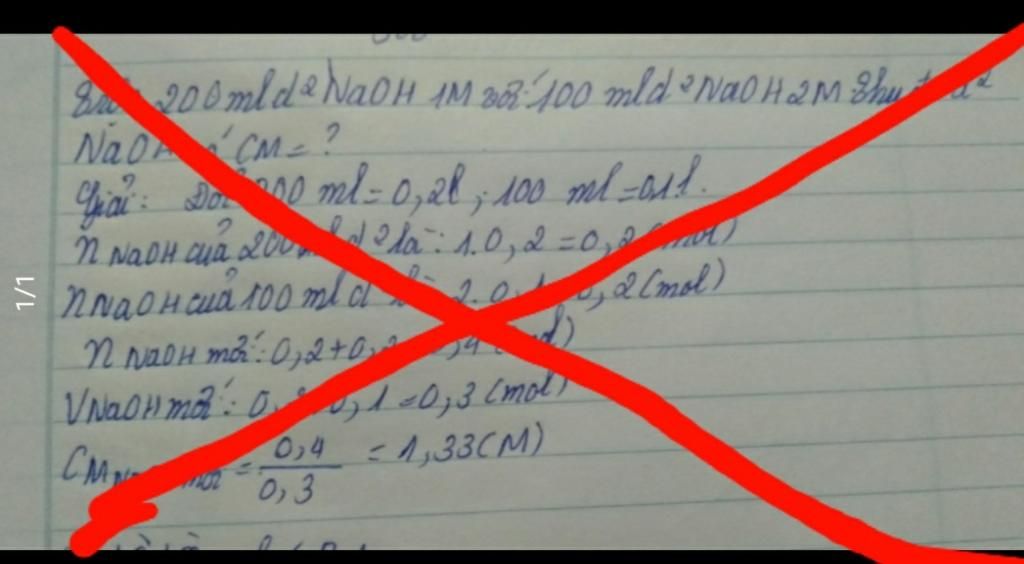 200 ml d² NaOH 1M với 100 ml d² NaOH 2M thu d²
NaOH CM = ?
Giải: Đổi 200 ml = 0,2l ; 100 ml = 0,1l.
n NaOH của 200 ml d² là: 1.0,2 = 0,2 (mol)
n NaOH của 100 ml d 2.0,1 0,2 (mol)
n NaOH mới: 0,2 + 0, ,4
V NaOH mới: 0, 0,1 = 0,3 (mol)
CM mới = 0,4 / 0,3 = 1,33 (M)
1/1